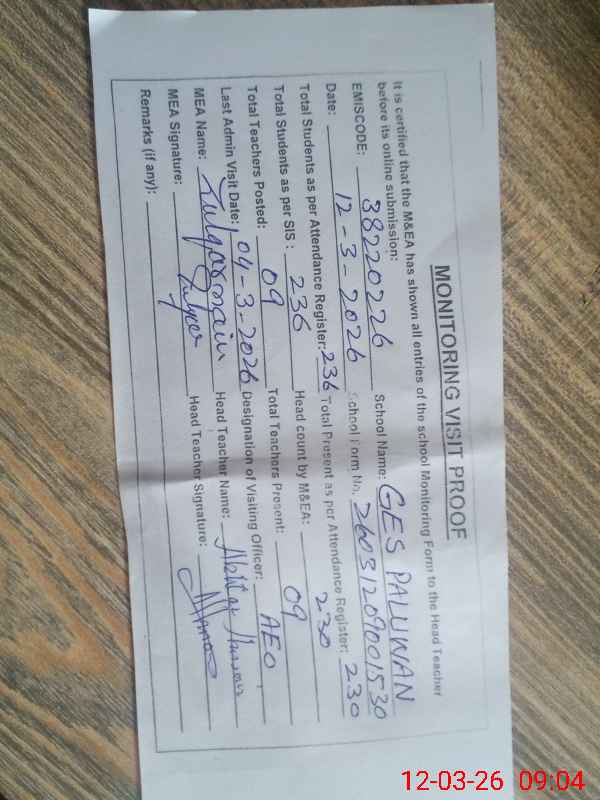 MONITORING VISIT PROOF
It is certified that the M&EA has shown all entries of the school Monitoring Form to the Head Teacher
before its online submission:
EMISCODE: 38220226 School Name: GES PALUWAN
Date: 12-3-2026 School Form No. 26031209001530
Total Students as per Attendance Register: 236 Total Present as per Attendance Register: 230
Total Students as per SIS: 236 Head count by M&EA: 230
Total Teachers Posted: 09 Total Teachers Present: 09
Last Admin Visit Date: 04-3-2026 Designation of Visiting Officer: AEO
MEA Name: Zulqarnain Head Teacher Name:
MEA Signature: Head Teacher Signature:
Remarks (if any):
12-03-26 09:04